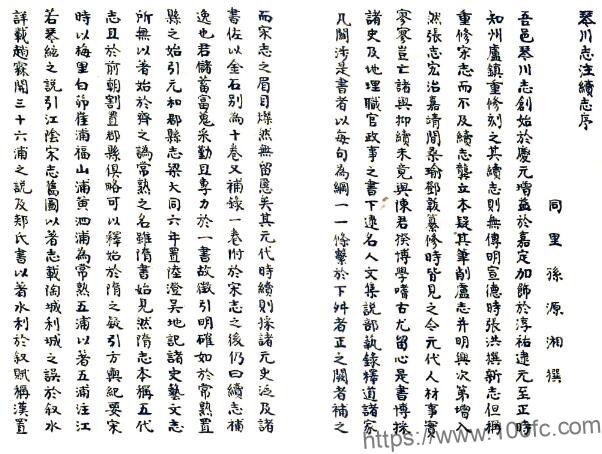 琴川志注續志序
同里孫源湘撰
吾邑琴川志創始於慶元增益於嘉定加飾於淳祐逮元至正時
知州盧鎮重修刻之其續志則無傳明宣德時張洪撰新志但稱
重修宋志而不及續志龔立本疑其筆削盧志并明興次第增入
然張志宏治嘉靖間桑瑜鄧韍纂修時皆見之今元代人材事實
寥寥豈亡諸與抑續未竟與陳君揆博學嗜古尤留心是書博採
諸史及地理職官政事之書下逮名人文集說部執錄釋道諸家
凡關涉是書者以每句為綱一一條繫於下舛者正之闕者補之
而宋志之眉目犛然無留慝矣其元代時續則採諸元史泛及諸
書佐以金石别為十卷又補嫁一卷附於宋志之後仍曰續志補
逸也君儲蓄富蒐采勤且專力於一書故徵引明確如於常熟置
縣之始引元和郡縣志梁大同六年置陸澄吳地記諸史藝文志
所無以著始於齊之譌常熟之名雖隋書始見然隋志本稱五代
志且於前朝割置郡縣俱略可以釋始於隋之疑引方輿紀要宋
時以梅里白茆崔浦福山浦黃泗浦為常熟五浦以著五浦注江
若琴絃之說引江陰宋志舊圖以著志載陶城利城之誤於敘水
詳載趙霖開三十六浦之說及郟氏書以著水利於敘賦稱漢置
https://www.100fc.com